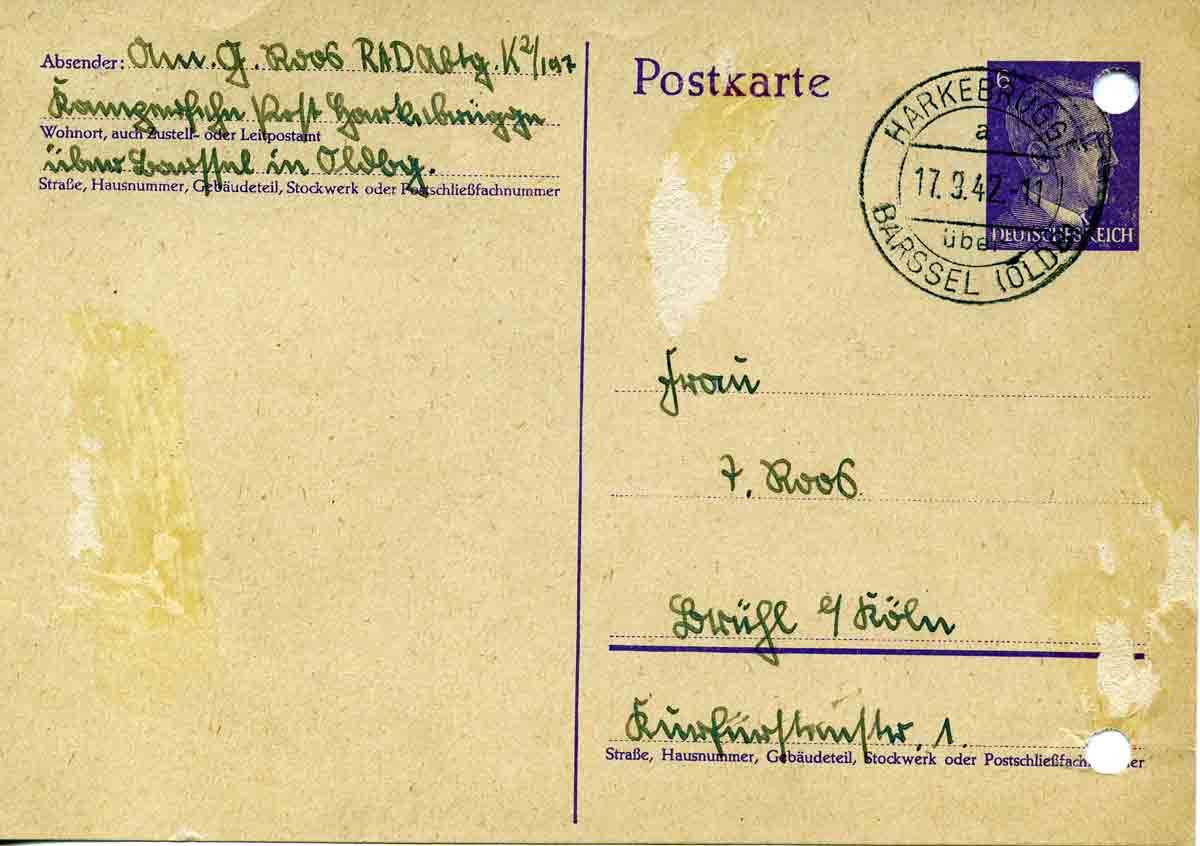 Absender: Am. G. Roos RAD Abtg. K2/197
Kampersfehn Post Harkebrügge
Wohnort, auch Zustell- oder Leitpostamt
über Barssel in Oldbg.
Straße, Hausnummer, Gebäudeteil, Stockwerk oder Postschließfachnummer
Postkarte
6
DEUTSCHES REICH
HARKEBRÜGGE
a
17.9.42.-11
über
BARSSEL (OLDB)
Frau
F. Roos
Brühl b/ Köln
Kurfürstenstr. 1.
Straße, Hausnummer, Gebäudeteil, Stockwerk oder Postschließfach er